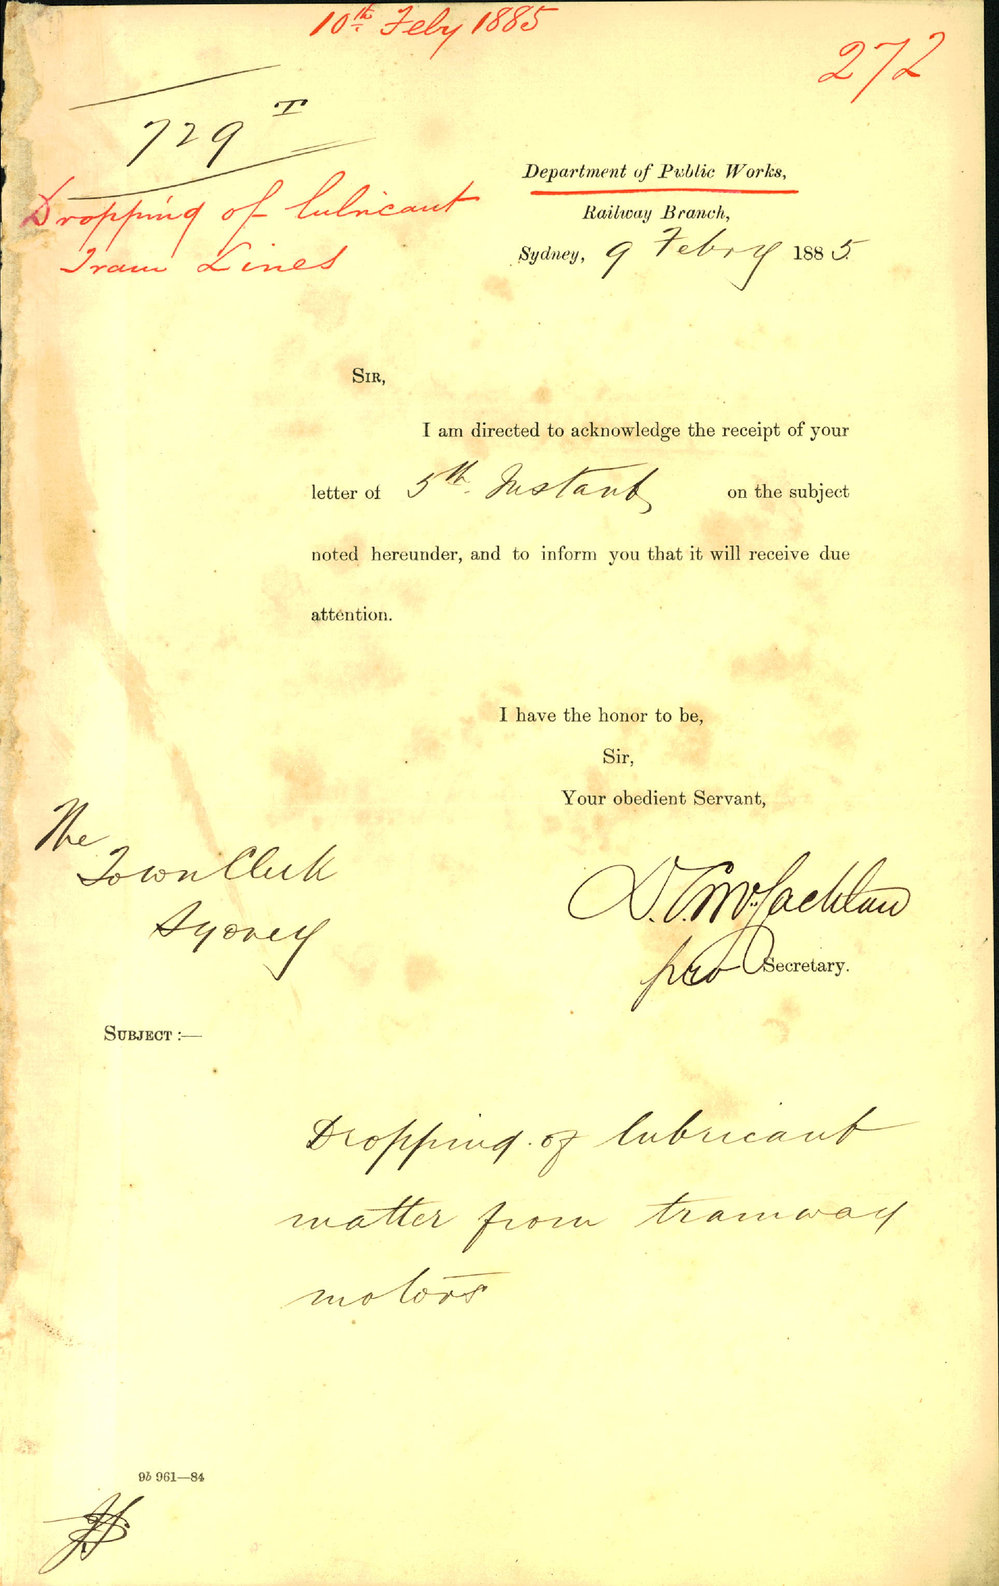 10th Feby 1885
272
729 T
Dropping of lubricant
Tram Lines
Department of Public Works,
Railway Branch,
Sydney, 9 Febry 1885.
SIR,
I am directed to acknowledge the receipt of your
letter of 5th Instant on the subject
noted hereunder, and to inform you that it will receive due
attention.
I have the honor to be,
Sir,
Your obedient Servant,
The
Town Clerk
Sydney
D. C. McLachlan
pro Secretary.
SUBJECT :—
Dropping of lubricant
matter from tramway
motors
9b 961—84